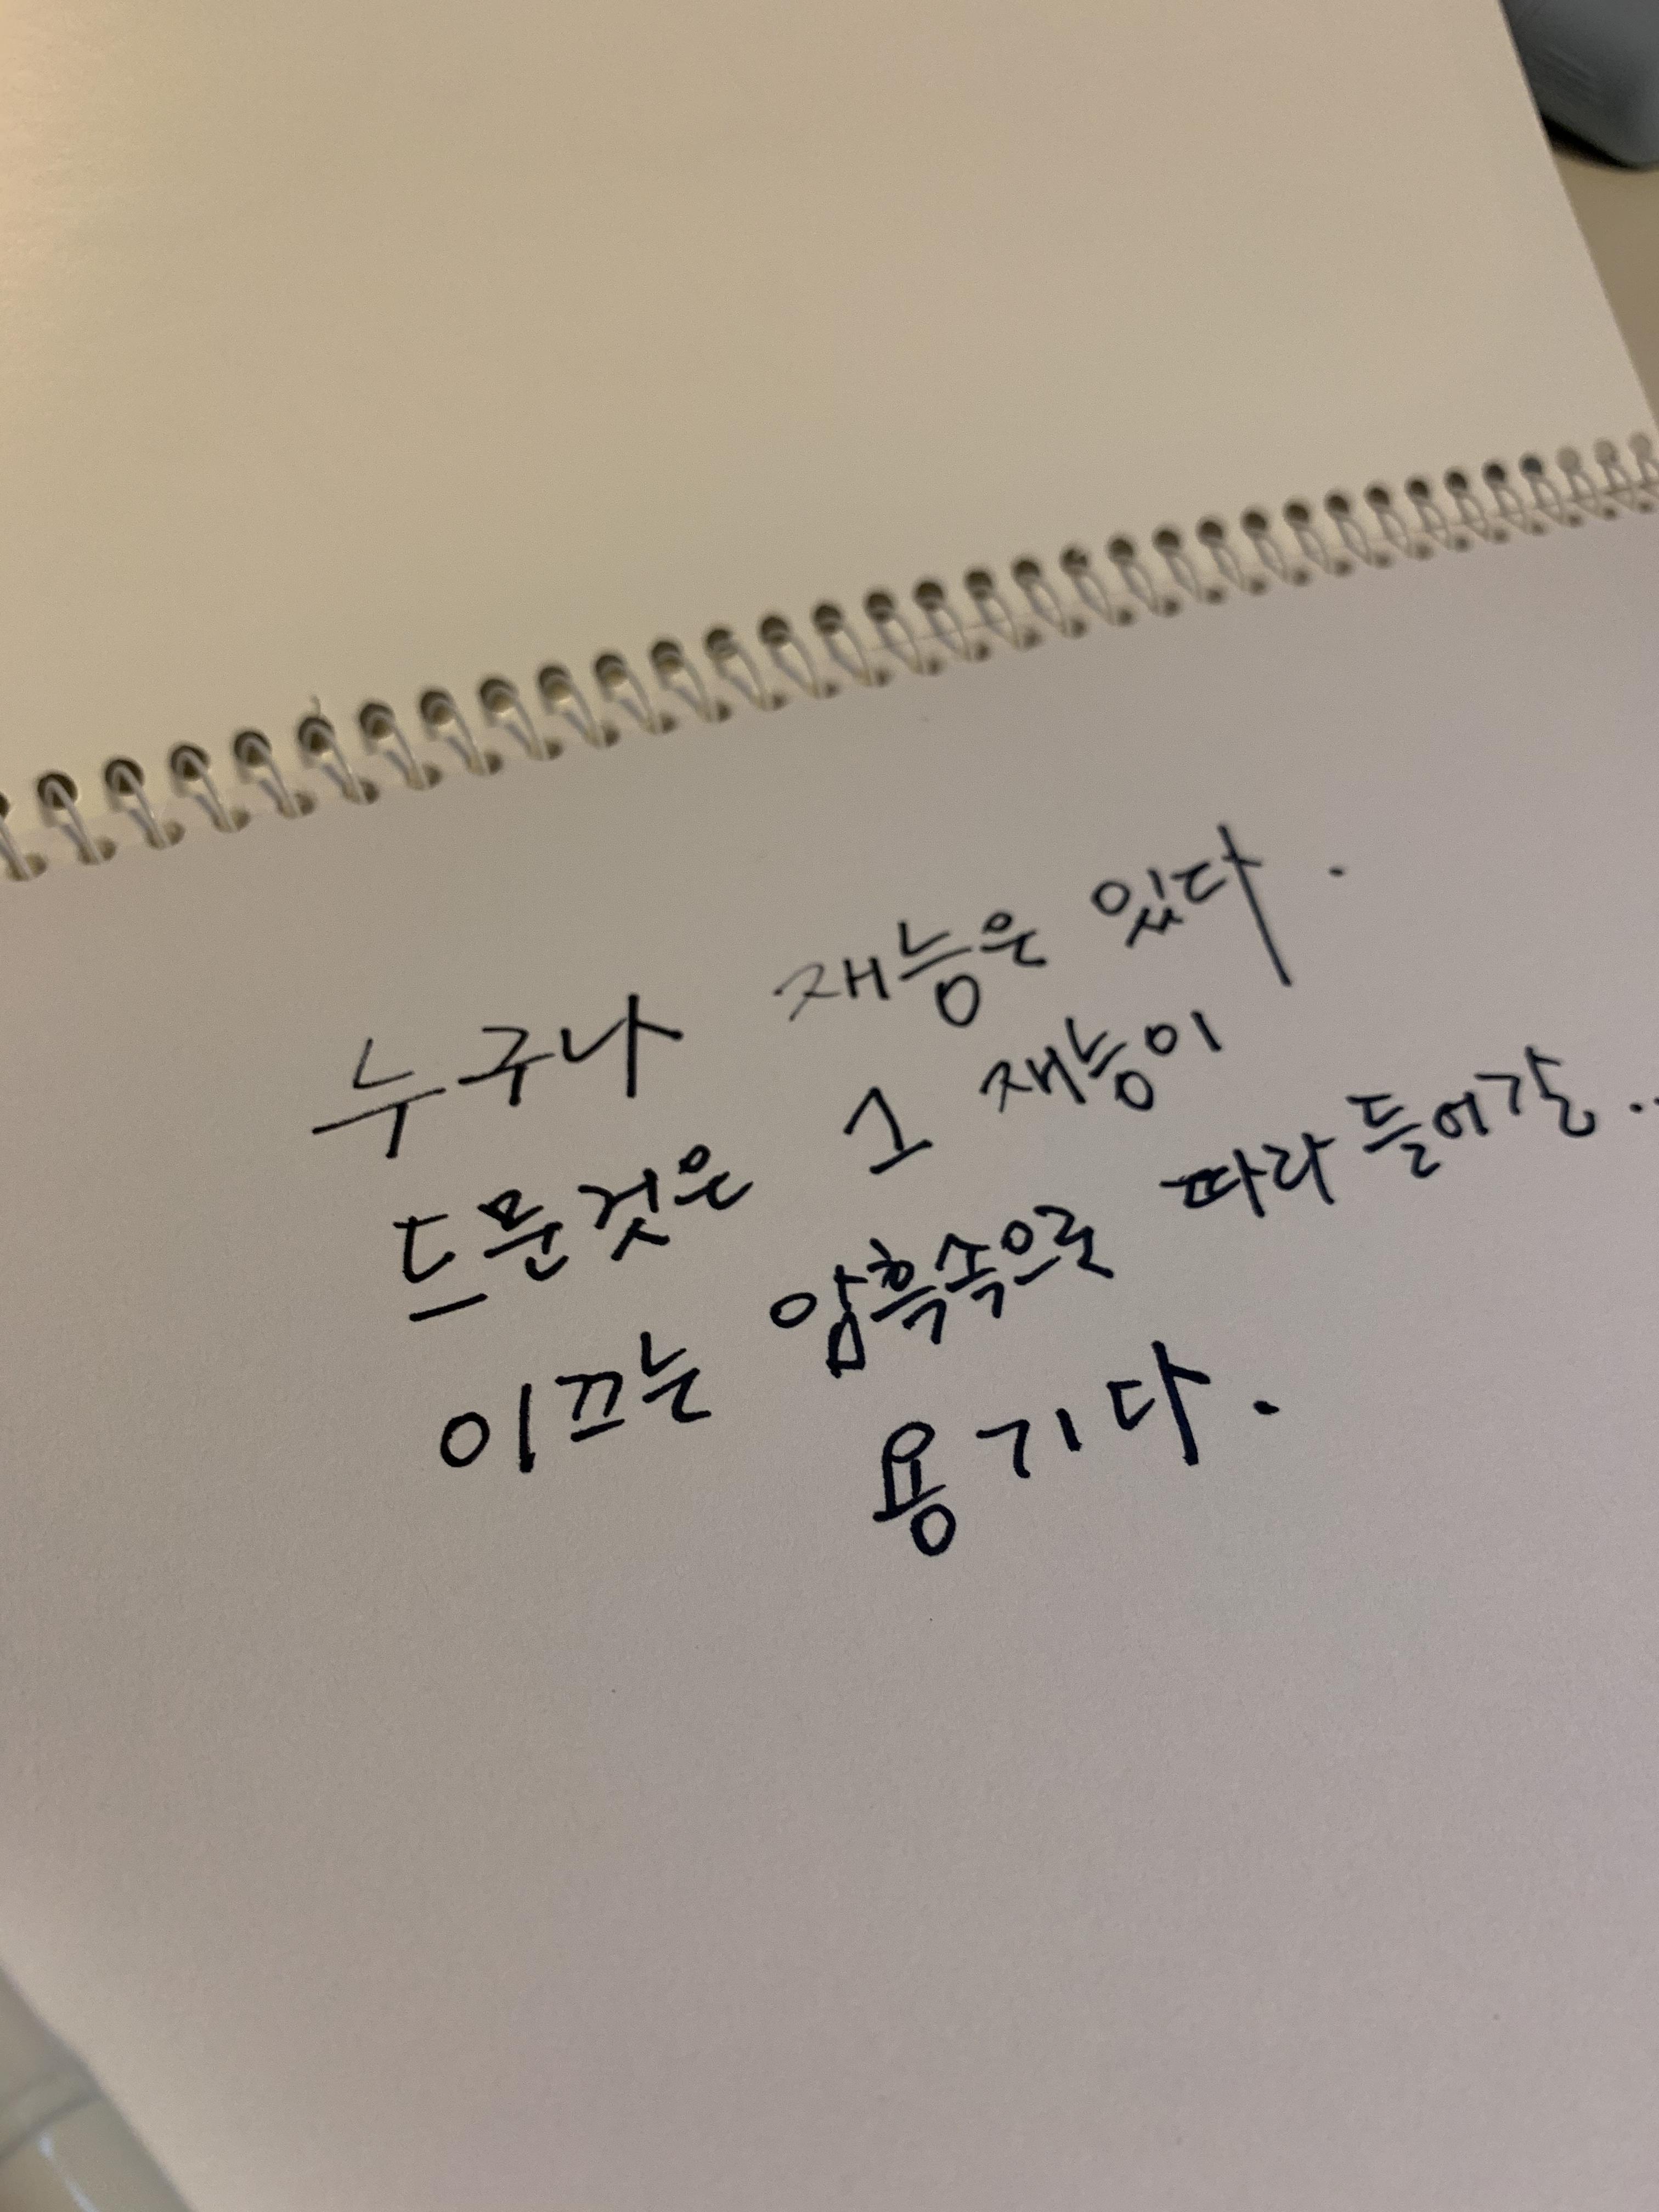 누구나 재능은 있다.
드문것은 그 재능이
이끄는 암흑속으로 따라 들어갈..
용기다.